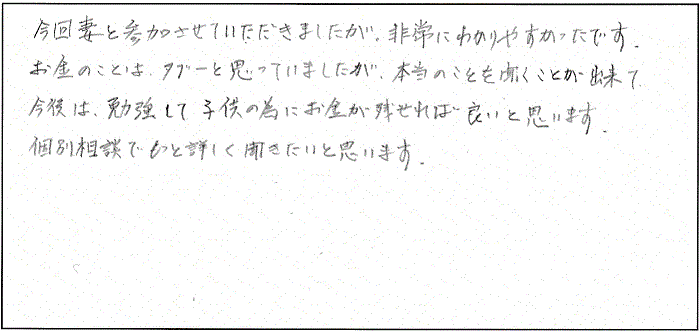 今回妻と参加させていただきましたが、非常にわかりやすかったです。
お金のことは、タブーと思っていましたが、本当のことを聞くことが出来て、
今後は、勉強して子供の為にお金が残せれば良いと思います。
個別相談でもっと詳しく聞きたいと思います。